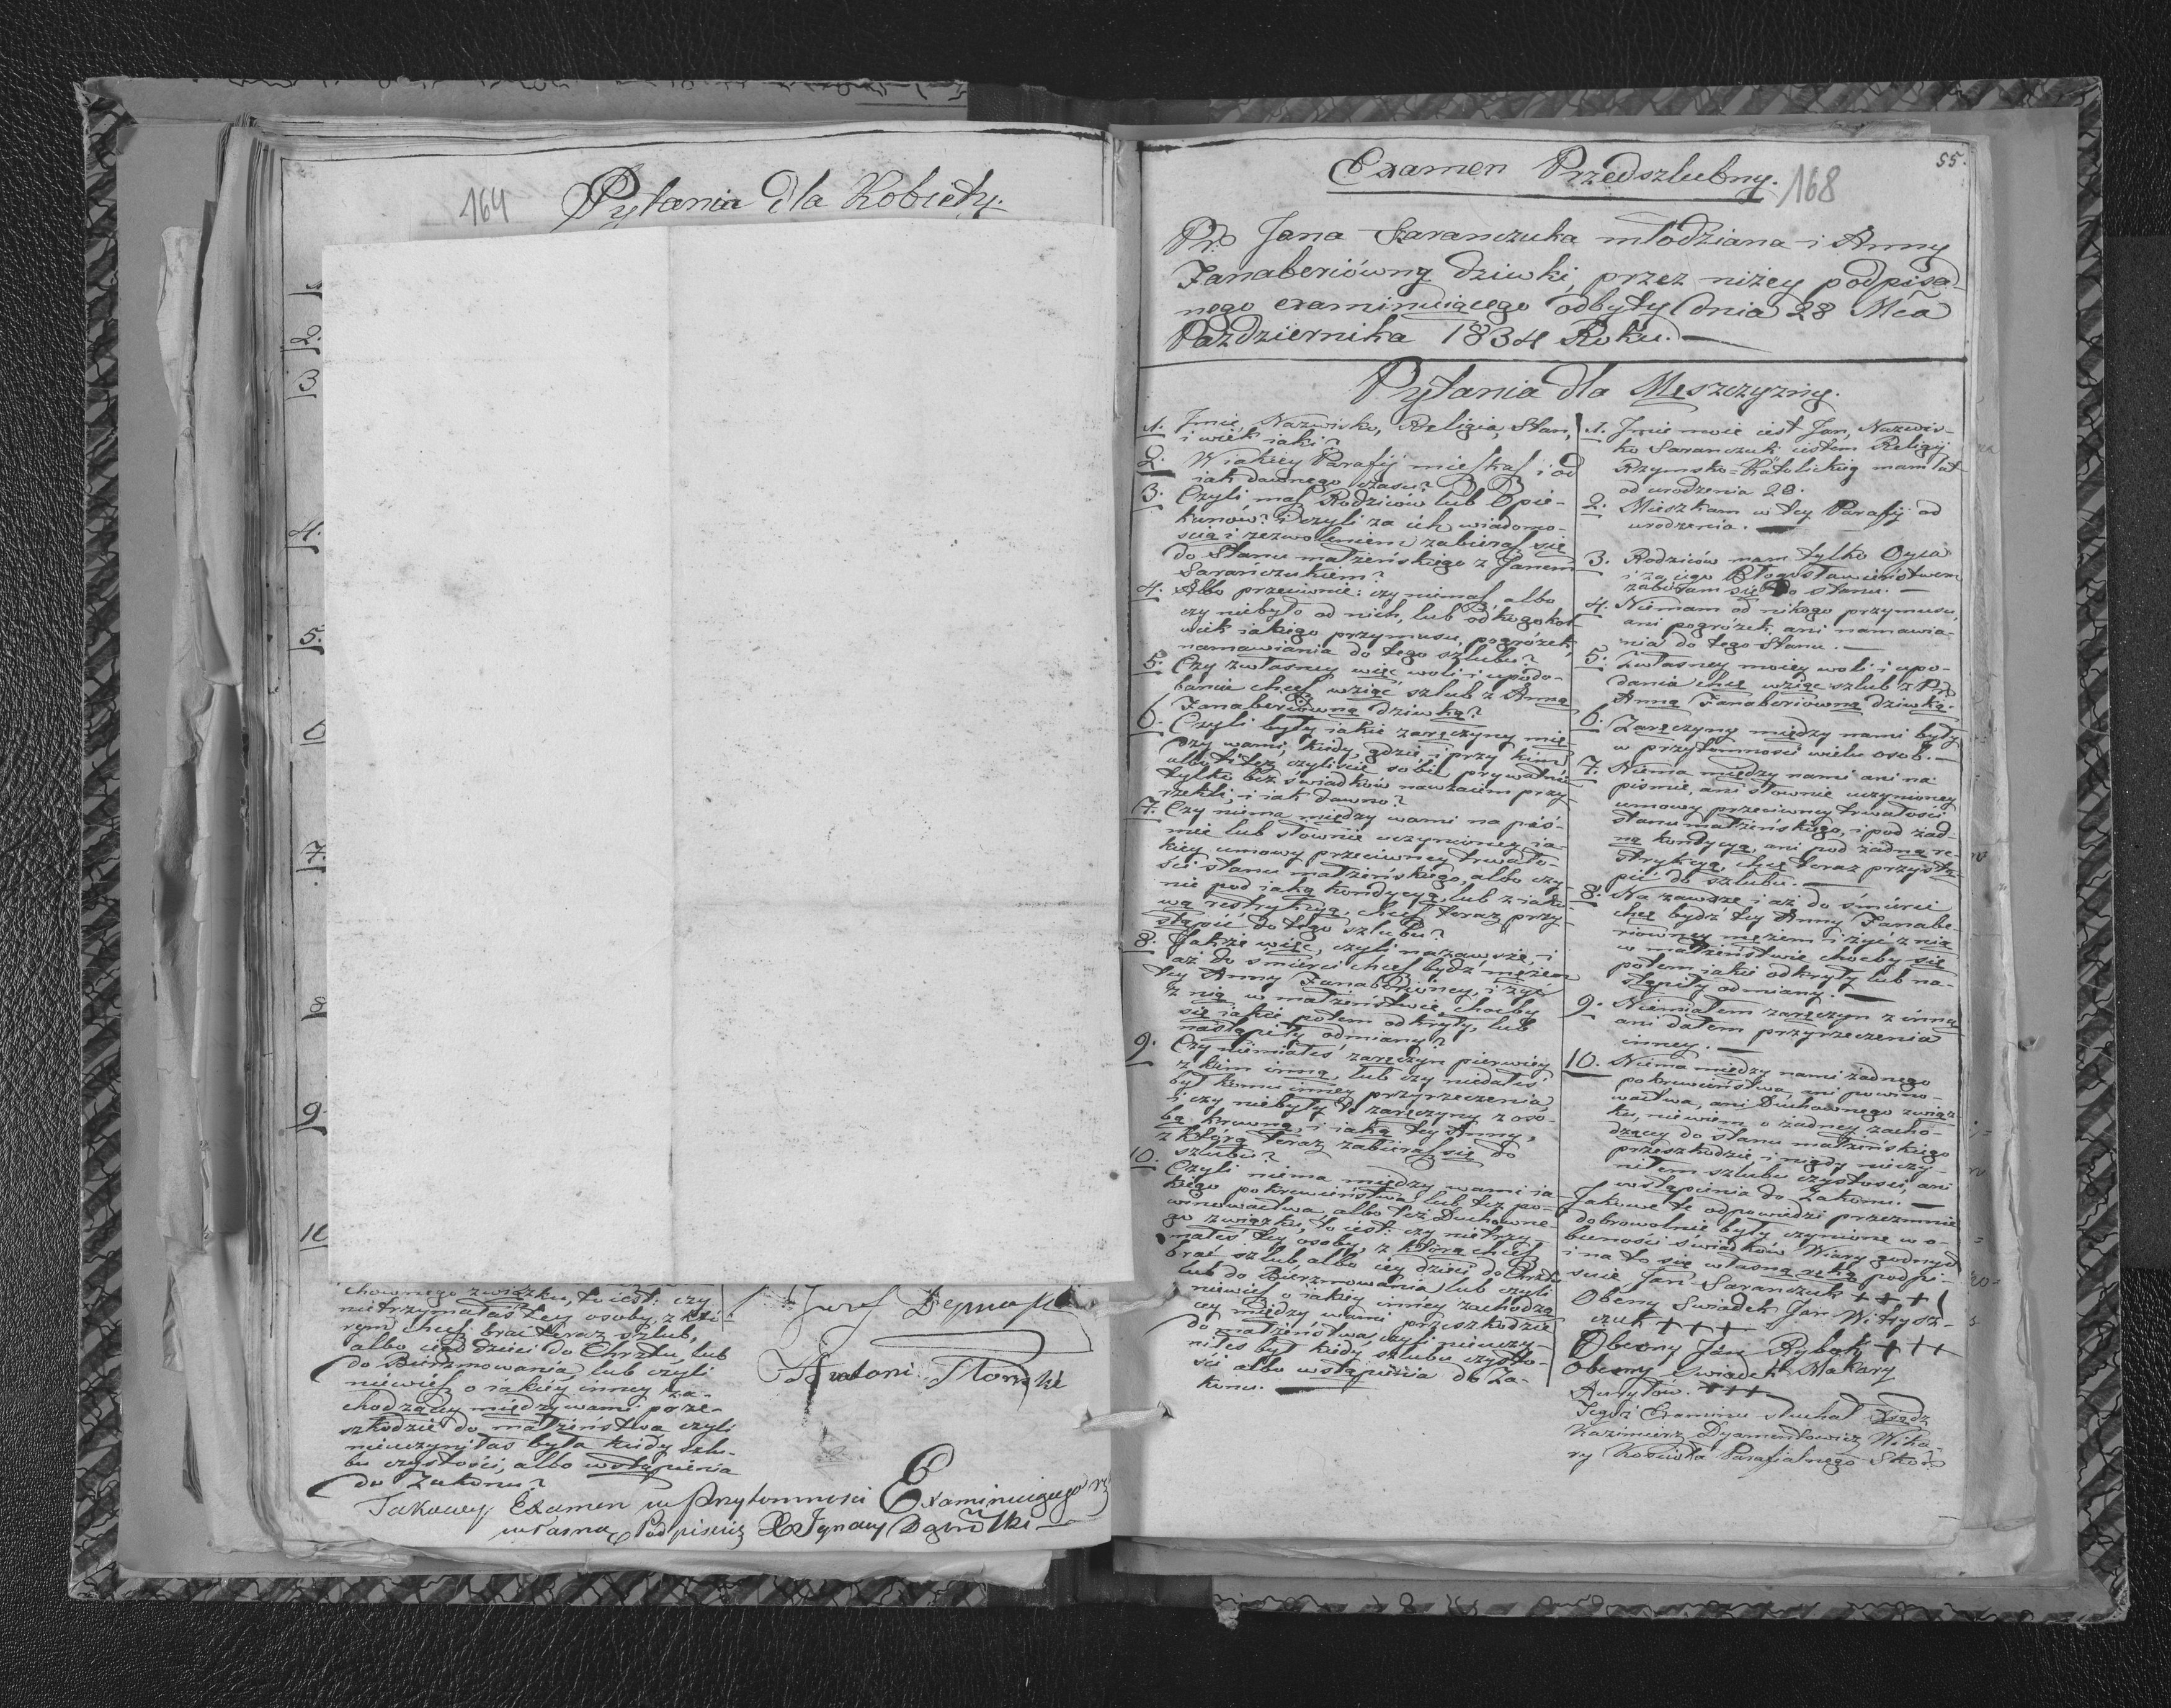 164 Pytania dla Kobiety.
1
2.
3
4.
5.
6
7.
8
9.
10
chownego związku, to iest: czy
nietrzymałaś tey osoby, z któ
rym chcesz brać teraz szlub,
albo iego dzieci do Chrztu, lub
do Bierzmowania, lub czyli
niewiesz o iakiéy inney za-
chodzący między wami prze-
szkodzie do małżeństwa czyli
nieuczyniłaś była kiedy szlu-
bu czystości, albo wstąpienia
do Zakonu?
Józef
Antoni
Takowey Examen w Przytomności Examinuiącego
własną Podpisuię X Ignacy
55.
Examen Przedszlubny. 168
Pr. Jana Saranczuka młodziana i Anny
Fanaberiówny dziwki, przez niżey podpisa-
nego examinuiącego odbyty dnia 28 Mca
Pazdziernika 1834 Roku.
Pytania dla Męszczyzny.
1. Jmie, Nazwisko, Religia, Stan,
i wiek iaki?
2. W iakiey Parafij mieszkasz i od
iak dawnego czasu?
3. Czyli masz Rodziców lub Opie-
kunów? i czyli za ich wiadomo-
scią i zezwoleniem zabierasz się
do Stanu małżeńskiego z Janem
Sarańczukiem?
4. Albo przeciwnie: czy niemasz albo
czy niebyło od nich, lub od kogokol
wiek iakiego przymusu, pogróżek,
namawiania do tego szlubu?
5. Czy zwłasney więc woli i upodo-
bania chcesz wziąć szlub z Anną
Fanaberiowną dziwką?
6. Czyli były iakie zaręczyny mię
dzy wami, kiedy, gdzie, i przy kim
albo też czyliście sobie prywatnie
tylko bez świadków nawzaiem przy-
rzekli, i iak dawno?
7. Czy niema między wami na piś-
mie lub słownie uczynioney ia-
kiey umowy przeciwney trwało-
ści stanu małżeńskiego, albo czy
nie pod iaką kondycyą, lub z iako
wą restrykcyą, chcesz teraz przy-
stąpić do tego szlubu?
8. Jakże więc, czyli nazawsze, i
aż do śmierci chcesz bydź mężem
tey Anny Fanaberióney, i żyć
z nią w małżeństwie, choćby
się iakie potem odkryły, lub
nastąpiły odmiany?
9. Czy niemiałeś zaręczyn pierwiey
z kim inną, lub czy niedałeś
był komu inney przyrzeczenia,
i czy niebyły to zaręczyny z oso-
bą krewną, i iaką tey Anny,
z którą teraz zabierasz się do
szlubu?
10. Czyli niema między wami ia-
kiego pokrewieństwa lub też po-
winowactwa, albo też Duchowne
go związku, to iest: czy nietrzy-
małeś tey osoby, z którą chcesz
brać szlub, albo iey dzieci do Chrztu
lub do Bierzmowania lub czyli
niewiesz o iakiey inney zachodzą
cey między wami przeszkodzie
do małżeństwa, czyli nieuczy-
niłeś był kiedy szlubu czysto-
ści albo wstąpienia do Za-
konu.
1. Jmie moie iest Jan, Nazwis-
ko Saranczuk iestem Religij
Rzymsko=Katolickiey mam lat
od urodzenia 28.
2. Mieszkam w tey Parafij od
urodzenia.
3. Rodziców mam tylko Oyca
i za iego Błogosławieństwem
zabieram się do stanu.
4. Niemam od nikogo przymusu,
ani pogróżek, ani namawia-
nia do tego Stanu.
5. Zwłasney moiey woli i upo-
dania chcę wziąć szlub z Pr.
Anną Fanaberiowną dziwką.
6. Zaręczyny między nami były
w przytomności wielu osob.
7. Niema między nami ani na
pismie, ani słownie uczynioney
umowy przeciwney trwałości
stanu małżeńskiego, i pod żad-
ną kondycyą, ani pod żadną re-
strykcyą, chcę teraz przystą-
pić do szlubu.
8. Na zawsze i aż do śmierci
chcę bydź tey Anny Fanabe-
riowney mężem i żyć z nią
w małżeństwie choćby się
potem iakie odkryły lub na-
stąpiły odmiany.
9. Niemiałem zaręczyn z inną
ani dałem przyrzeczenia
inney.
10. Niema między nami żadnego
pokrewieństwa, ani powino-
wactwa, ani Duchownego związ-
ku, niewiem o żadney zacho-
dzącey do stanu małżeńskiego
przeszkodzie, i nigdy nieczy-
niłem szlubu czystości, ani
wstąpienia do Zakonu.
Jakowe te odpowiedzi przezemnie
dobrowolnie były czynione w o-
becności świadków Wiary godnych
i na to się własną ręką podpi-
suię Jan Saranczuk + + +
Obecny Swiadek Jan Witysz-
czuk + + +
Obecny Jan Rybak + + +
Obecny Swiadek Makary
+ + +
Tegoż Examinu słuchał Xiądz
Kazimierz Dyamentowicz Wika-
ry Kościoła Parafialnego